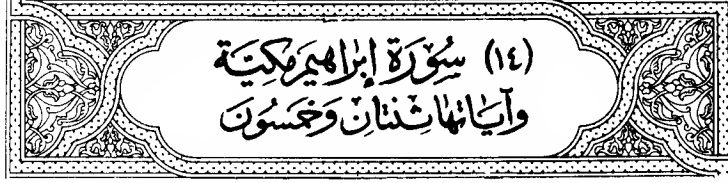 (١٤) سُوْرَة إبْراهيمَ مَكِيَّة
وَآيَاتهَا ثِنتَانِ وَخَمسُونَ